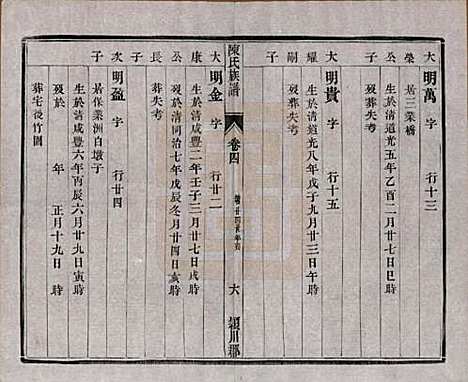 大榮子
明萬 字 行十三
居三業橋
生於清道光五年乙酉二月廿七日巳時
歿葬失考
大耀嗣子
明貴 字 行十五
生於清道光八年戊子九月廿三日午時
歿葬失考
陳氏族譜 卷四 六 潁川郡
大康公長子
明金 字 行廿二
生於清咸豐二年壬子三月廿七日戌時
歿於清同治七年戊辰冬月廿四日亥時
葬失考
次子
明盈 字 行廿四
居保業洲白墩子
生於清咸豐六年丙辰六月廿九日寅時
歿於 年 正月十九日 時
葬宅後竹園